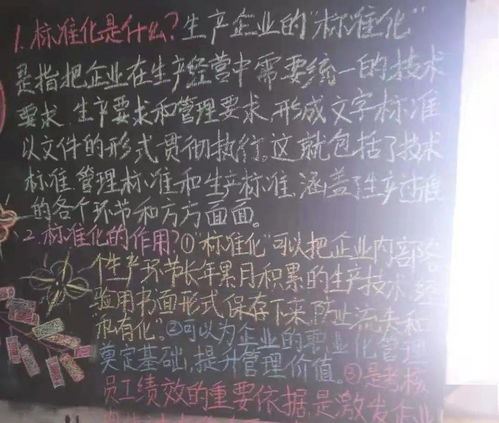 1.标准化是什么?生产企业的“标准化”
是指把企业在生产经营中需要统一的技术
要求、生产要求和管理要求,形成文字标准
以文件的形式贯彻执行。这就包括了技术
标准、管理标准和生产标准,涵盖了生产过程
的各个环节和方方面面。
2.标准化的作用?①“标准化”可以把企业内部各
个生产环节长年累月积累的生产技术、经
验用书面形式保存下来,防止流失和
“私有化”。②可以为企业的专业化管理
奠定基础,提升管理价值。③是考核
员工绩效的重要依据,是激发企业